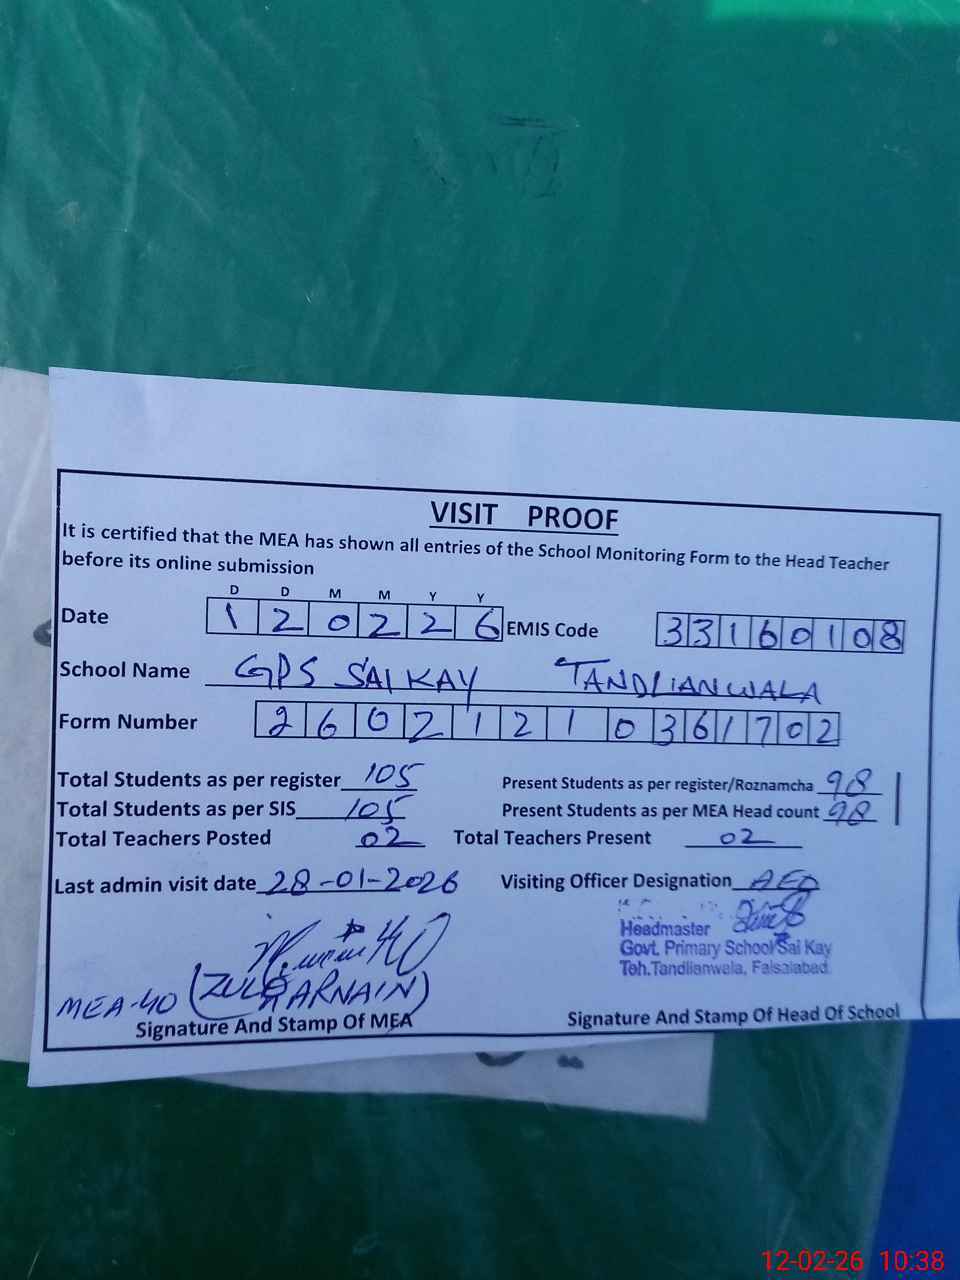 VISIT PROOF
It is certified that the MEA has shown all entries of the School Monitoring Form to the Head Teacher
before its online submission
D D M M Y Y
Date 1 2 0 2 2 6 EMIS Code 3 3 1 6 0 1 0 8
School Name GPS SAI KAY TANDLIANWALA
Form Number 2 6 0 2 1 2 1 0 3 6 1 7 0 2
Total Students as per register 105 Present Students as per register/Roznamcha 98
Total Students as per SIS 105 Present Students as per MEA Head count 98
Total Teachers Posted 02 Total Teachers Present 02
Last admin visit date 28-01-2026 Visiting Officer Designation AEO
Headmaster
Govt. Primary School Sai Kay
Teh. Tandlianwala, Faisalabad.
MEA-40 (ZULQARNAIN)
Signature And Stamp Of MEA Signature And Stamp Of Head Of School
12-02-26 10:38